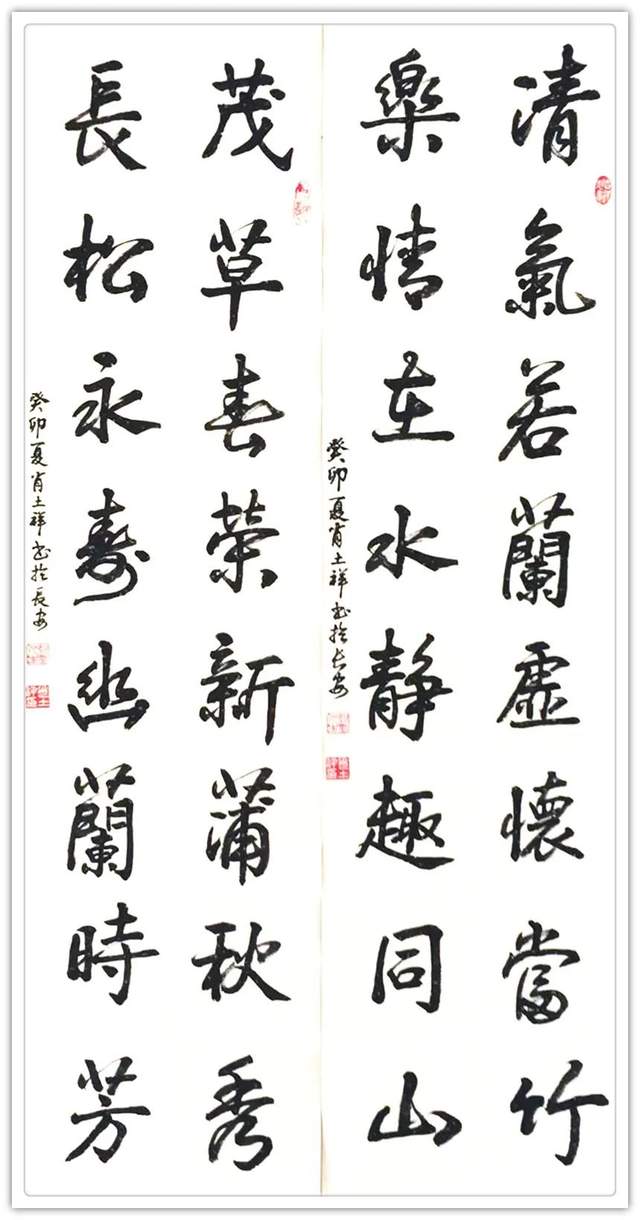 清氣若蘭虛懷當竹
樂情在水靜趣同山
癸卯夏肖土祥書於長安
茂草春榮新蒲秋秀
長松永壽幽蘭時芳
癸卯夏肖土祥書於長安